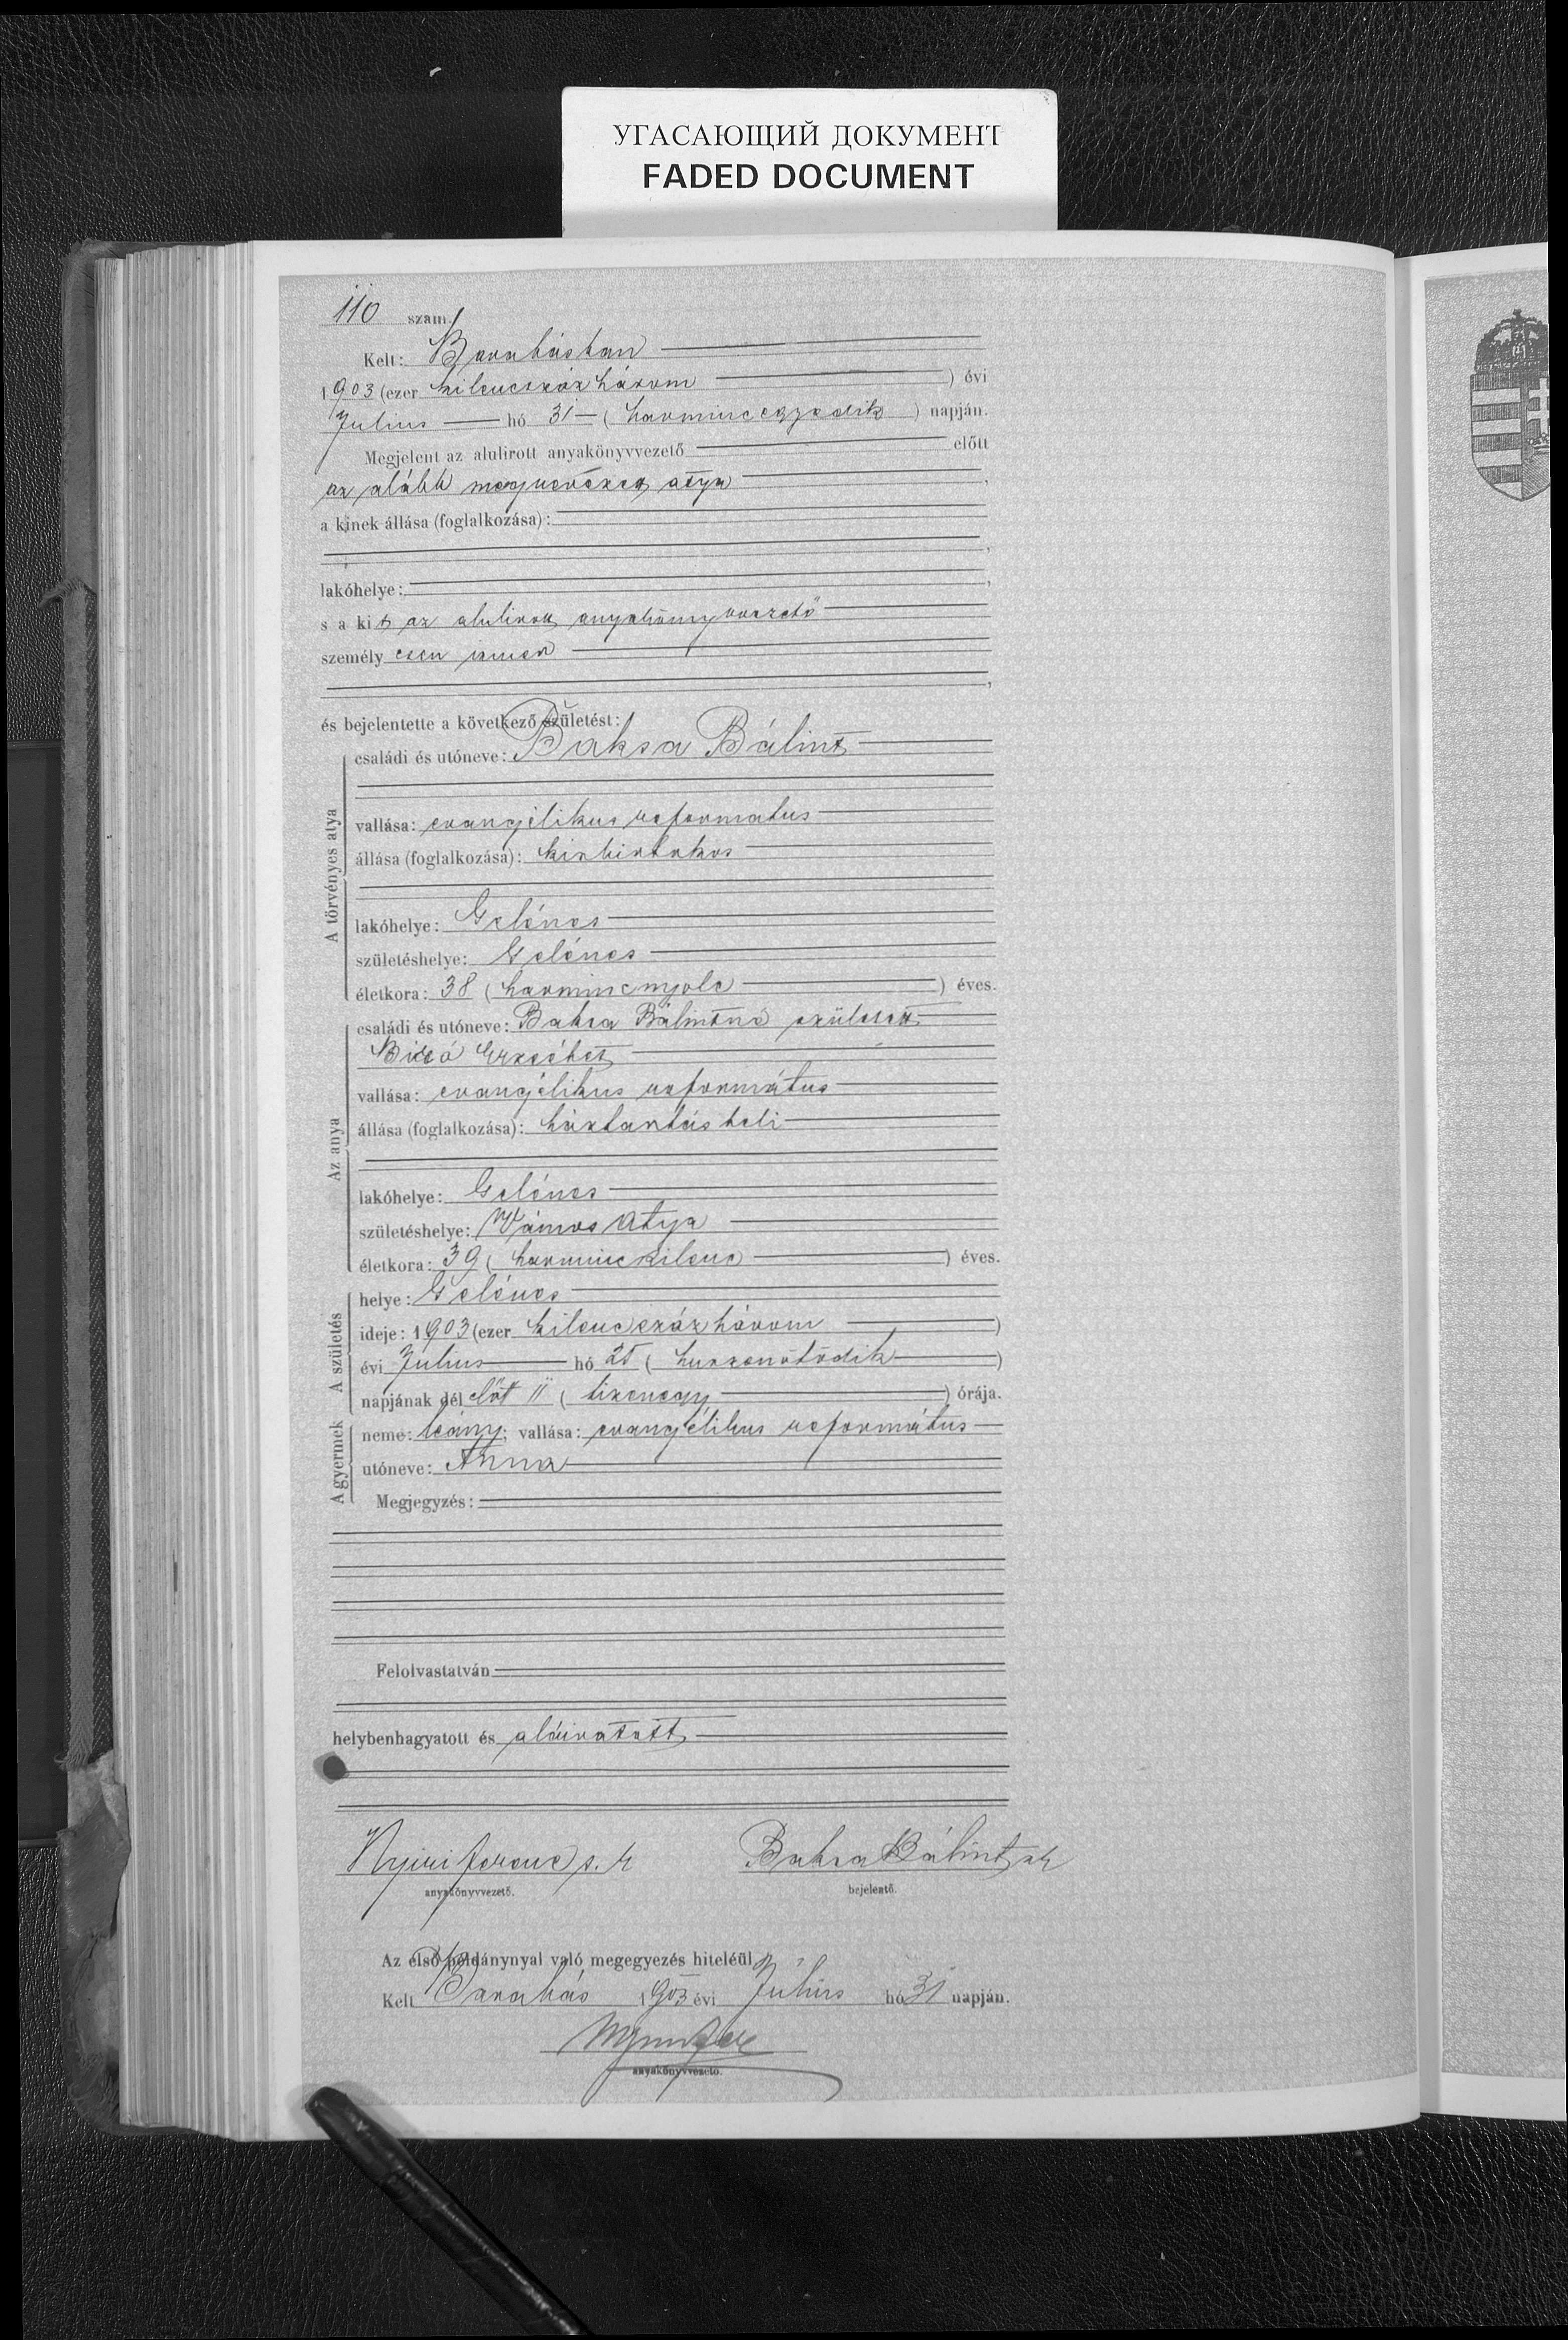 УГАСАЮЩИЙ ДОКУМЕНТ
FADED DOCUMENT
110 szám.
Kelt: Barabásban
1903 (ezer kilencszáz három) évi
Julius hó 31 (harmincegyedik) napján.
Megjelent az alulirott anyakönyvvezető előtt
az alább megnevezett atya,
a kinek állása (foglalkozása):
lakóhelye:
s a kit az alulirott anyakönyvvezető
személyesen ismer
és bejelentette a következő születést:
A törvényes atya
családi és utóneve: Baksa Bálint
vallása: evangélikus reformatus
állása (foglalkozása): kisbirtokos
lakóhelye: Gelénes
születéshelye: Gelénes
életkora: 38 (harmincnyolc) éves.
Az anya
családi és utóneve: Baksa Bálintné született
Biró Erzsébet
vallása: evangélikus református
állása (foglalkozása): háztartásbeli
lakóhelye: Gelénes
születéshelye: Vámos Atya
életkora: 39 (harminckilenc) éves.
A születés
helye: Gelénes
ideje: 1903 (ezer kilencszáz három)
évi Julius hó 25 (huszonötödik)
napjának dél előt 11 (tizenegy) órája.
A gyermek
neme: leány; vallása: evangélikus református
utóneve: Anna
Megjegyzés:
Felolvastatván
helybenhagyatott és aláiratott
Nyiri Ferenc s. k Baksa Bálint sk
anyakönyvvezető. bejelentő.
Az első példánynyal való megegyezés hiteléül
Kelt Barabás 1903 évi Julius hó 31 napján.
anyakönyvvezető.